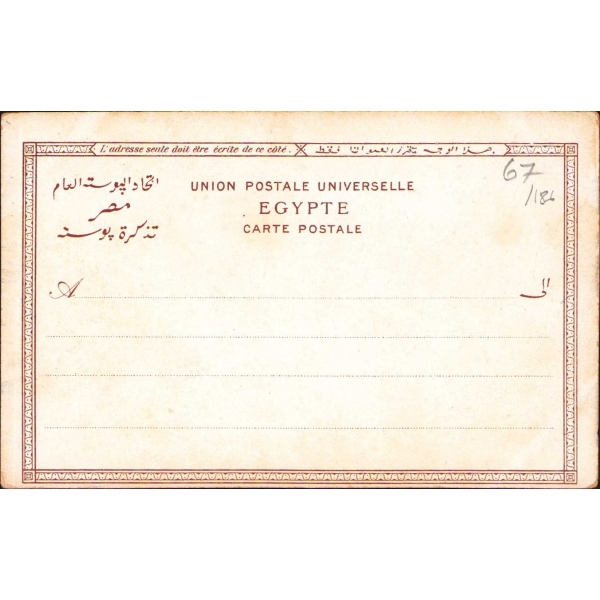 L'adresse seule doit être écrite de ce côté. هذا الوجه يحرر العنوان فقط.
67
/186
اتحاد البوسته العام
مصر
تذكرة بوسته
UNION POSTALE UNIVERSELLE
EGYPTE
CARTE POSTALE
A
الى